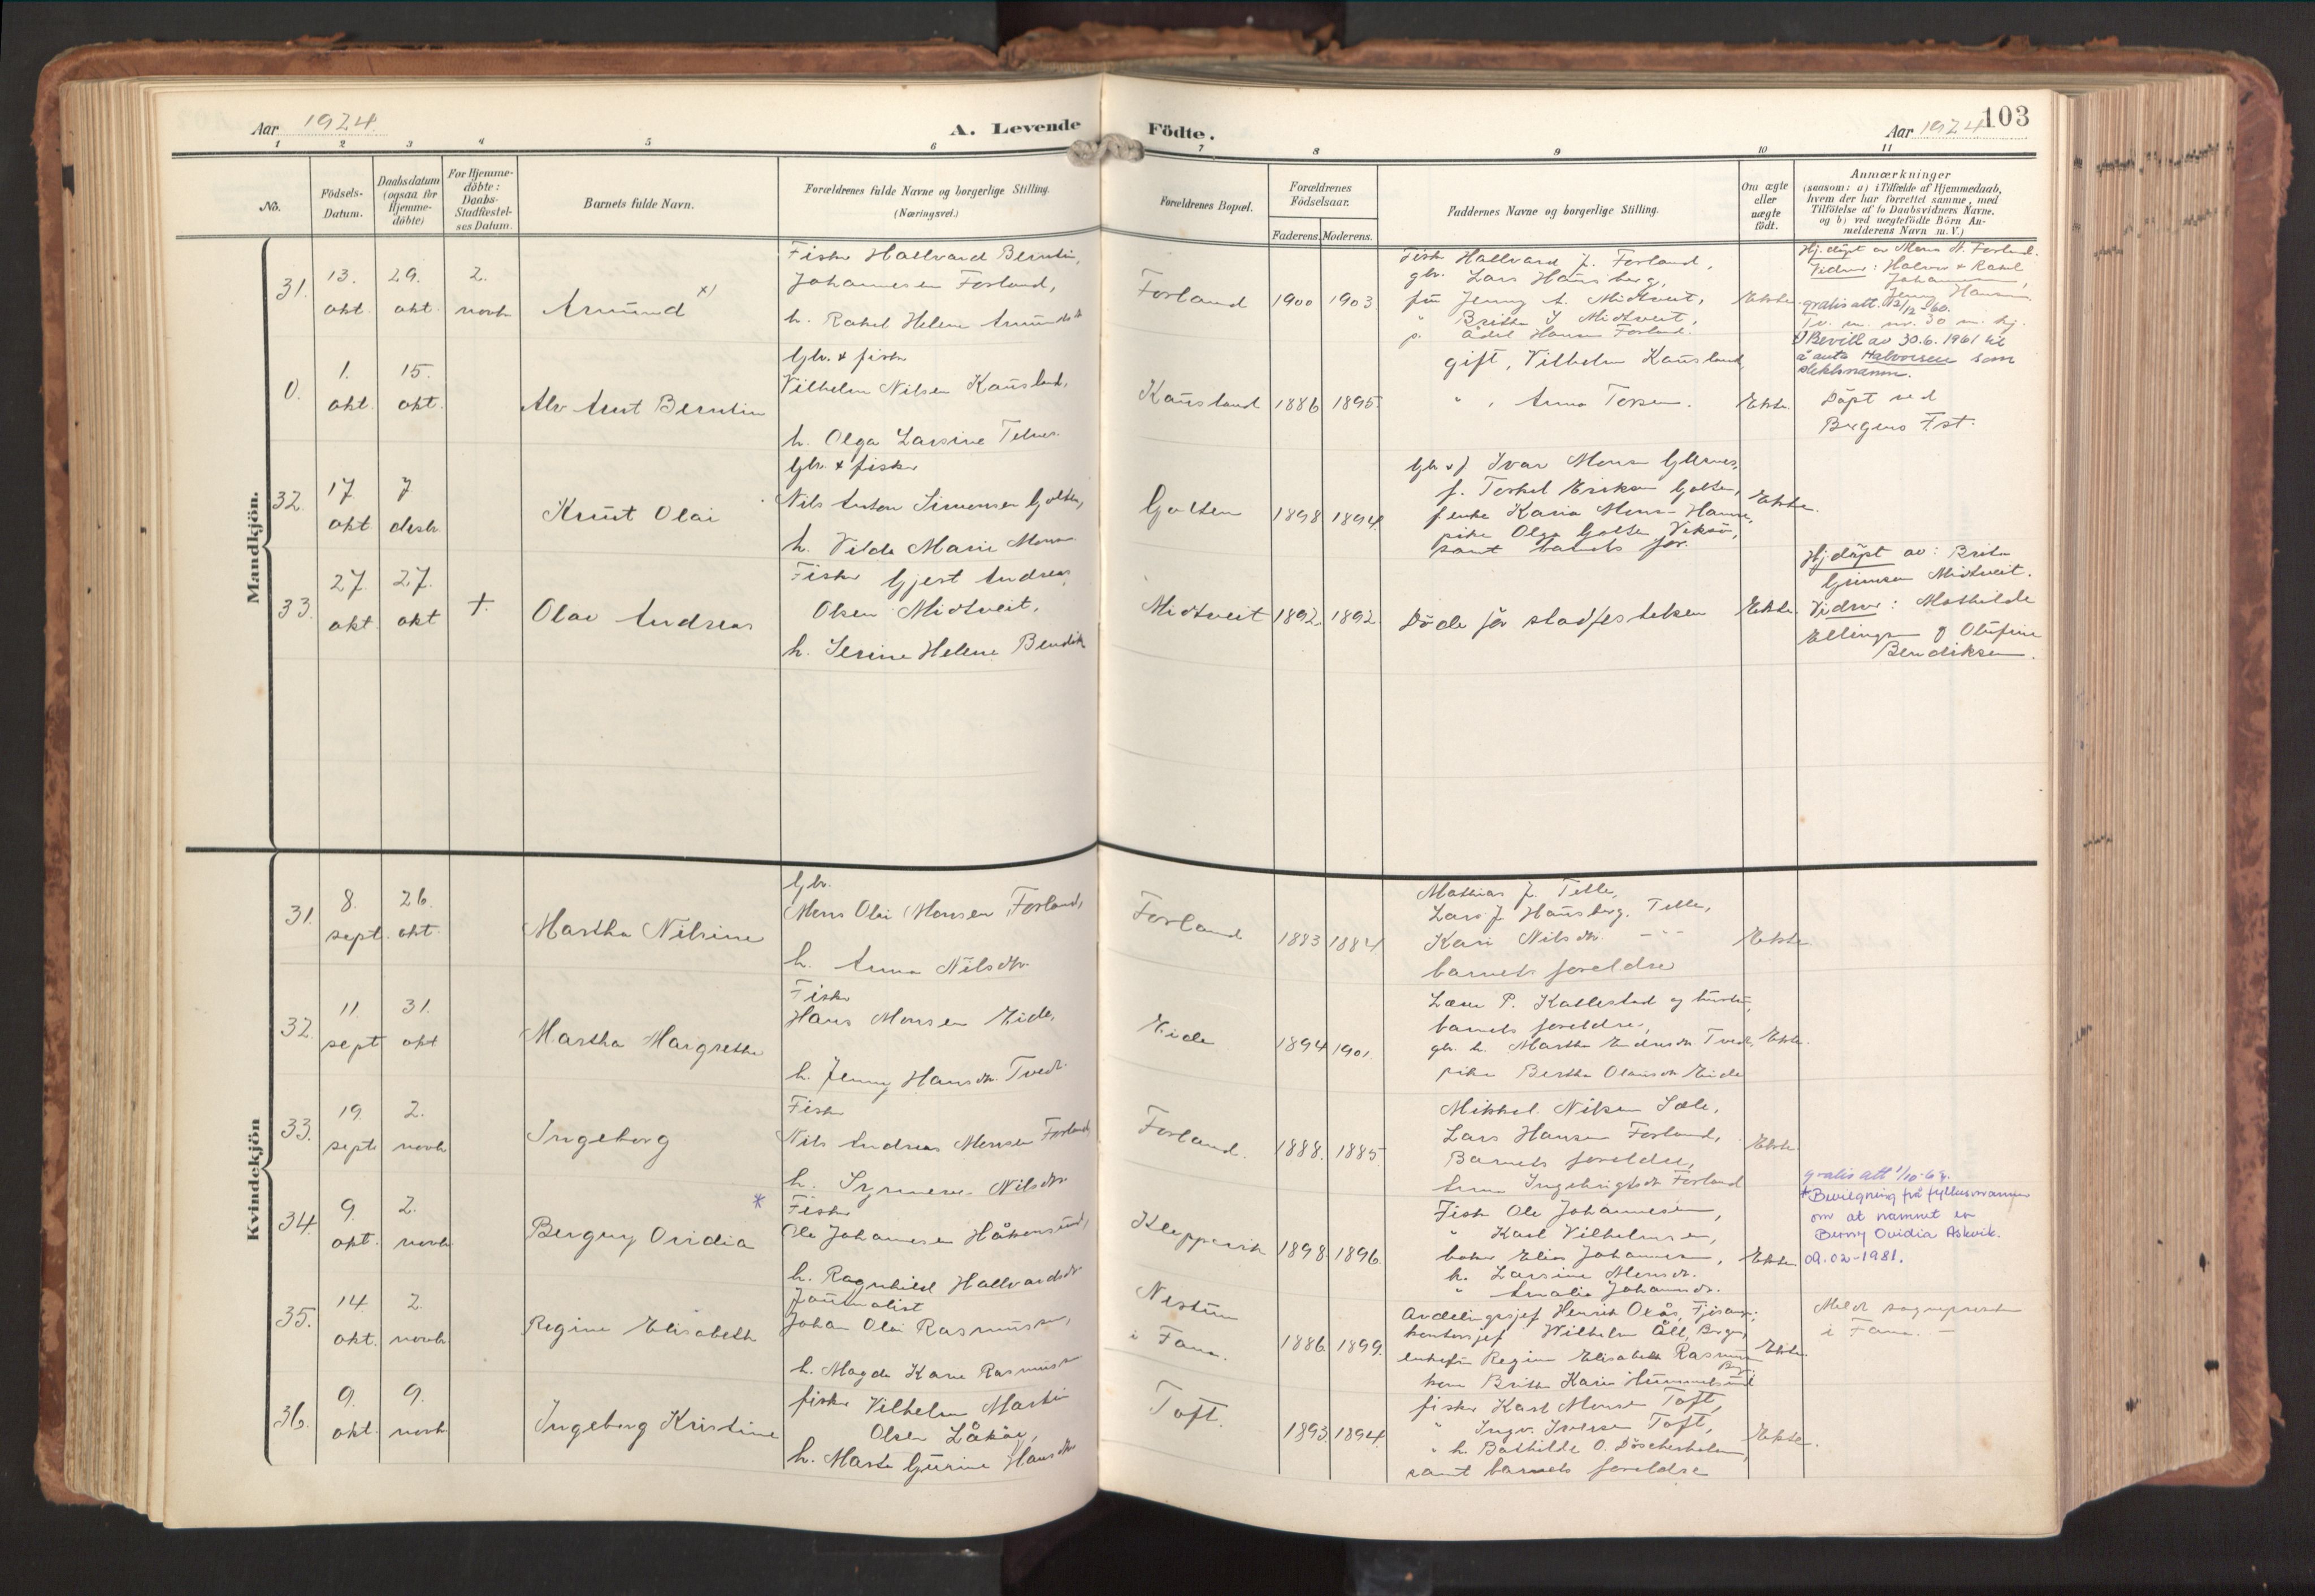 Aar 1924.
A. Levende
Födte.
Aar 1924
103
1 2 3 4 5 6 7 8 9 10 11
No.
Födsels-
Datum.
Daabsdatum
(ogsaa for
Hjemme-
döbte)
For Hjemme-
döbte:
Daabs-
Stadfæstel-
ses Datum.
Barnets fulde Navn.
Forældrenes fulde Navne og borgerlige Stilling.
(Næringsvei.)
Forældrenes Bopæl.
Forældrenes
Födselsaar.
Faderens.
Moderens.
Faddernes Navne og borgerlige Stilling.
Om ægte
eller
uægte
födt.
Anmærkninger
(saasom: a) i Tilfælde af Hjemmedaab,
hvem der har forrettet samme, med
Tilföielse af to Daabsvidners Navne.
og b) ved uægtefödte Börn An-
melderens Navn m. V.)
Mandkjön.
31.
13.
okt.
29.
okt.
2.
novb.
Amund x)
Fisker Hallvard Berntin,
Johannesen Forland,
h. Rakel Helene
Forland
1900
1903
Fisk. Hallvard J. Forland,
gbr. Lars Hausberg,
fru Jenny A. Midtveit,
" Britha J. Midtveit,
p. Hansen Forland.
Ekte.
Hj.döpt av Mons N. Forland.
Vidner: Halvor & Rakel
Johannesen,
Jenny Hansen.
gratis att. 12/12 60.
Tv. m. nr. 30 m. kj.
x) Bevill av 30.6.1961 til
å anta Halvorsen som
slektsnamn.
0.
1.
okt.
15.
okt.
Alv Arnt Berntin
Gbr. & fisker
Vilhelm Nilsen Kausland,
h. Olga Larsine
Kausland
1886
1895.
gift, Vilhelm Kausland,
" , Anna
Ekte.
Döpt ved
Bergens Fst.
32.
17.
okt
7
desb.
Knut Olai
Gbr. & fisker
Nils Anton Simonsen Golten,
h. Vilde Marie
Golten
1898
1894.
Gbr & f Ivar Monsen
f. Torkel Eriksen Golten,
f.enke Karia
pike Olga Golten
samt barnets far.
Ekte.
33.
27.
okt
27.
okt
+.
Olav Andreas
Fisker Gjert Andreas
Olsen Midtveit,
h. Serine Helene
Midtveit
1892.
1892
Döde för stadfestelsen
Ekte.
Hj.döpt av: Brita
Grimsen Midtveit.
Vidner: Mathilde
Ellingsen og Olufine
Bendiksen.
Kvindekjön
31.
8.
sept.
26.
okt.
Martha Nilsine
Gbr.
Mons Olai Monsen Forland,
h. Anna Nilsdtr.
Forland
1883
1884
Mathias J. Telle,
Lars J. Hausberg, Telle,
Kari Nilsdtr. - " -
barnets foreldre
Ekte
32.
11.
sept
31.
okt
Martha Margrethe
Fisker
Hans Monsen Eide,
h. Jenny Hansdtr. Tvedt.
Eide
1894
1901.
P. Kallestad og hustru,
barnets foreldre,
gbr. h. Martha Tvedt,
pike Bertha Olausdtr Eide
Ekte.
33.
19.
sept
2.
novb
Ingeborg
Fisker
Nils Andreas Monsen Forland,
h. Nilsdtr.
Forland.
1888.
1885.
Mikkel Nilsen Sæle,
Lars Hansen Forland,
Barnets foreldre,
Anna Ingebrigtsdtr Forland
Ekte.
34.
9.
okt.
2.
novb
Bergny Ovidia
*
Fisker
Ole Johannesen Håkonsund,
h. Ragnhild Hallvardsdtr
Klepperik
1898
1896
Fisk. Ole Johannesen,
" Karl Vilhelmsen,
Elias Johannesen,
h. Larsine Monsdtr.
" Amalie Johannsdtr.
Ekte.
gratis att 1/10-69.
* Bevilgning frå fylkesmannen
om at namnet er
Berny Ovidia Askvik.
09.02-1981.
35.
14.
okt.
2.
novb.
Regine Elisabeth
Journalist
Johan Olai Rasmussen,
h. Magda Karie Rasmussen
Nestun
i Fana.
1886.
1899.
Avdelingsjef Henrik Olås,
kontorsjef Wilhelm Åll, Bergen,
enkefru Regine Elisabeth Rasmussen
Britha Karie Hummelsund
Ekte.
Meldt sogneprest
i Fana. —
36.
9.
okt.
9.
novb.
Ingeborg Kristine
fisker Vilhelm Martin
Olsen Låköy,
h. Marta Gurine Hansdtr
Toft.
1893.
1894.
fisker Karl Monsen Toft,
" Ingv. Iversen Toft,
" h. Bathilde O.
samt barnets foreldre
Ekte.